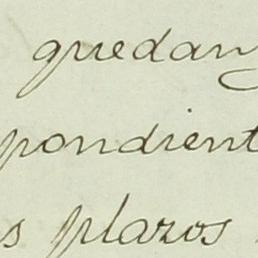 quedan
pondient
s plazos